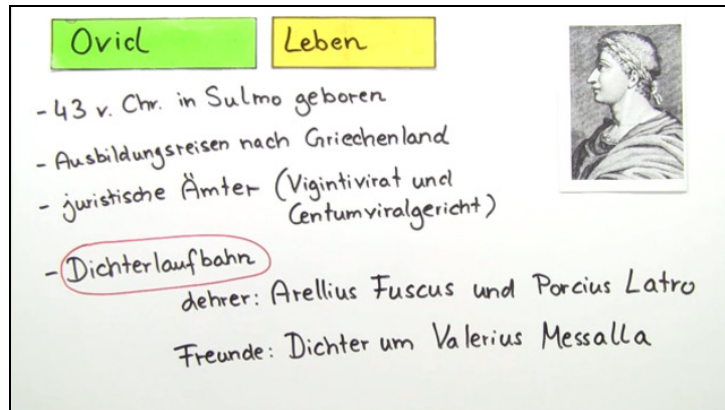 Ovid Leben
- 43 v. Chr. in Sulmo geboren
- Ausbildungsreisen nach Griechenland
- juristische Ämter (Vigintivirat und
Centumviralgericht)
- Dichterlaufbahn
Lehrer: Arellius Fuscus und Porcius Latro
Freunde: Dichter um Valerius Messalla